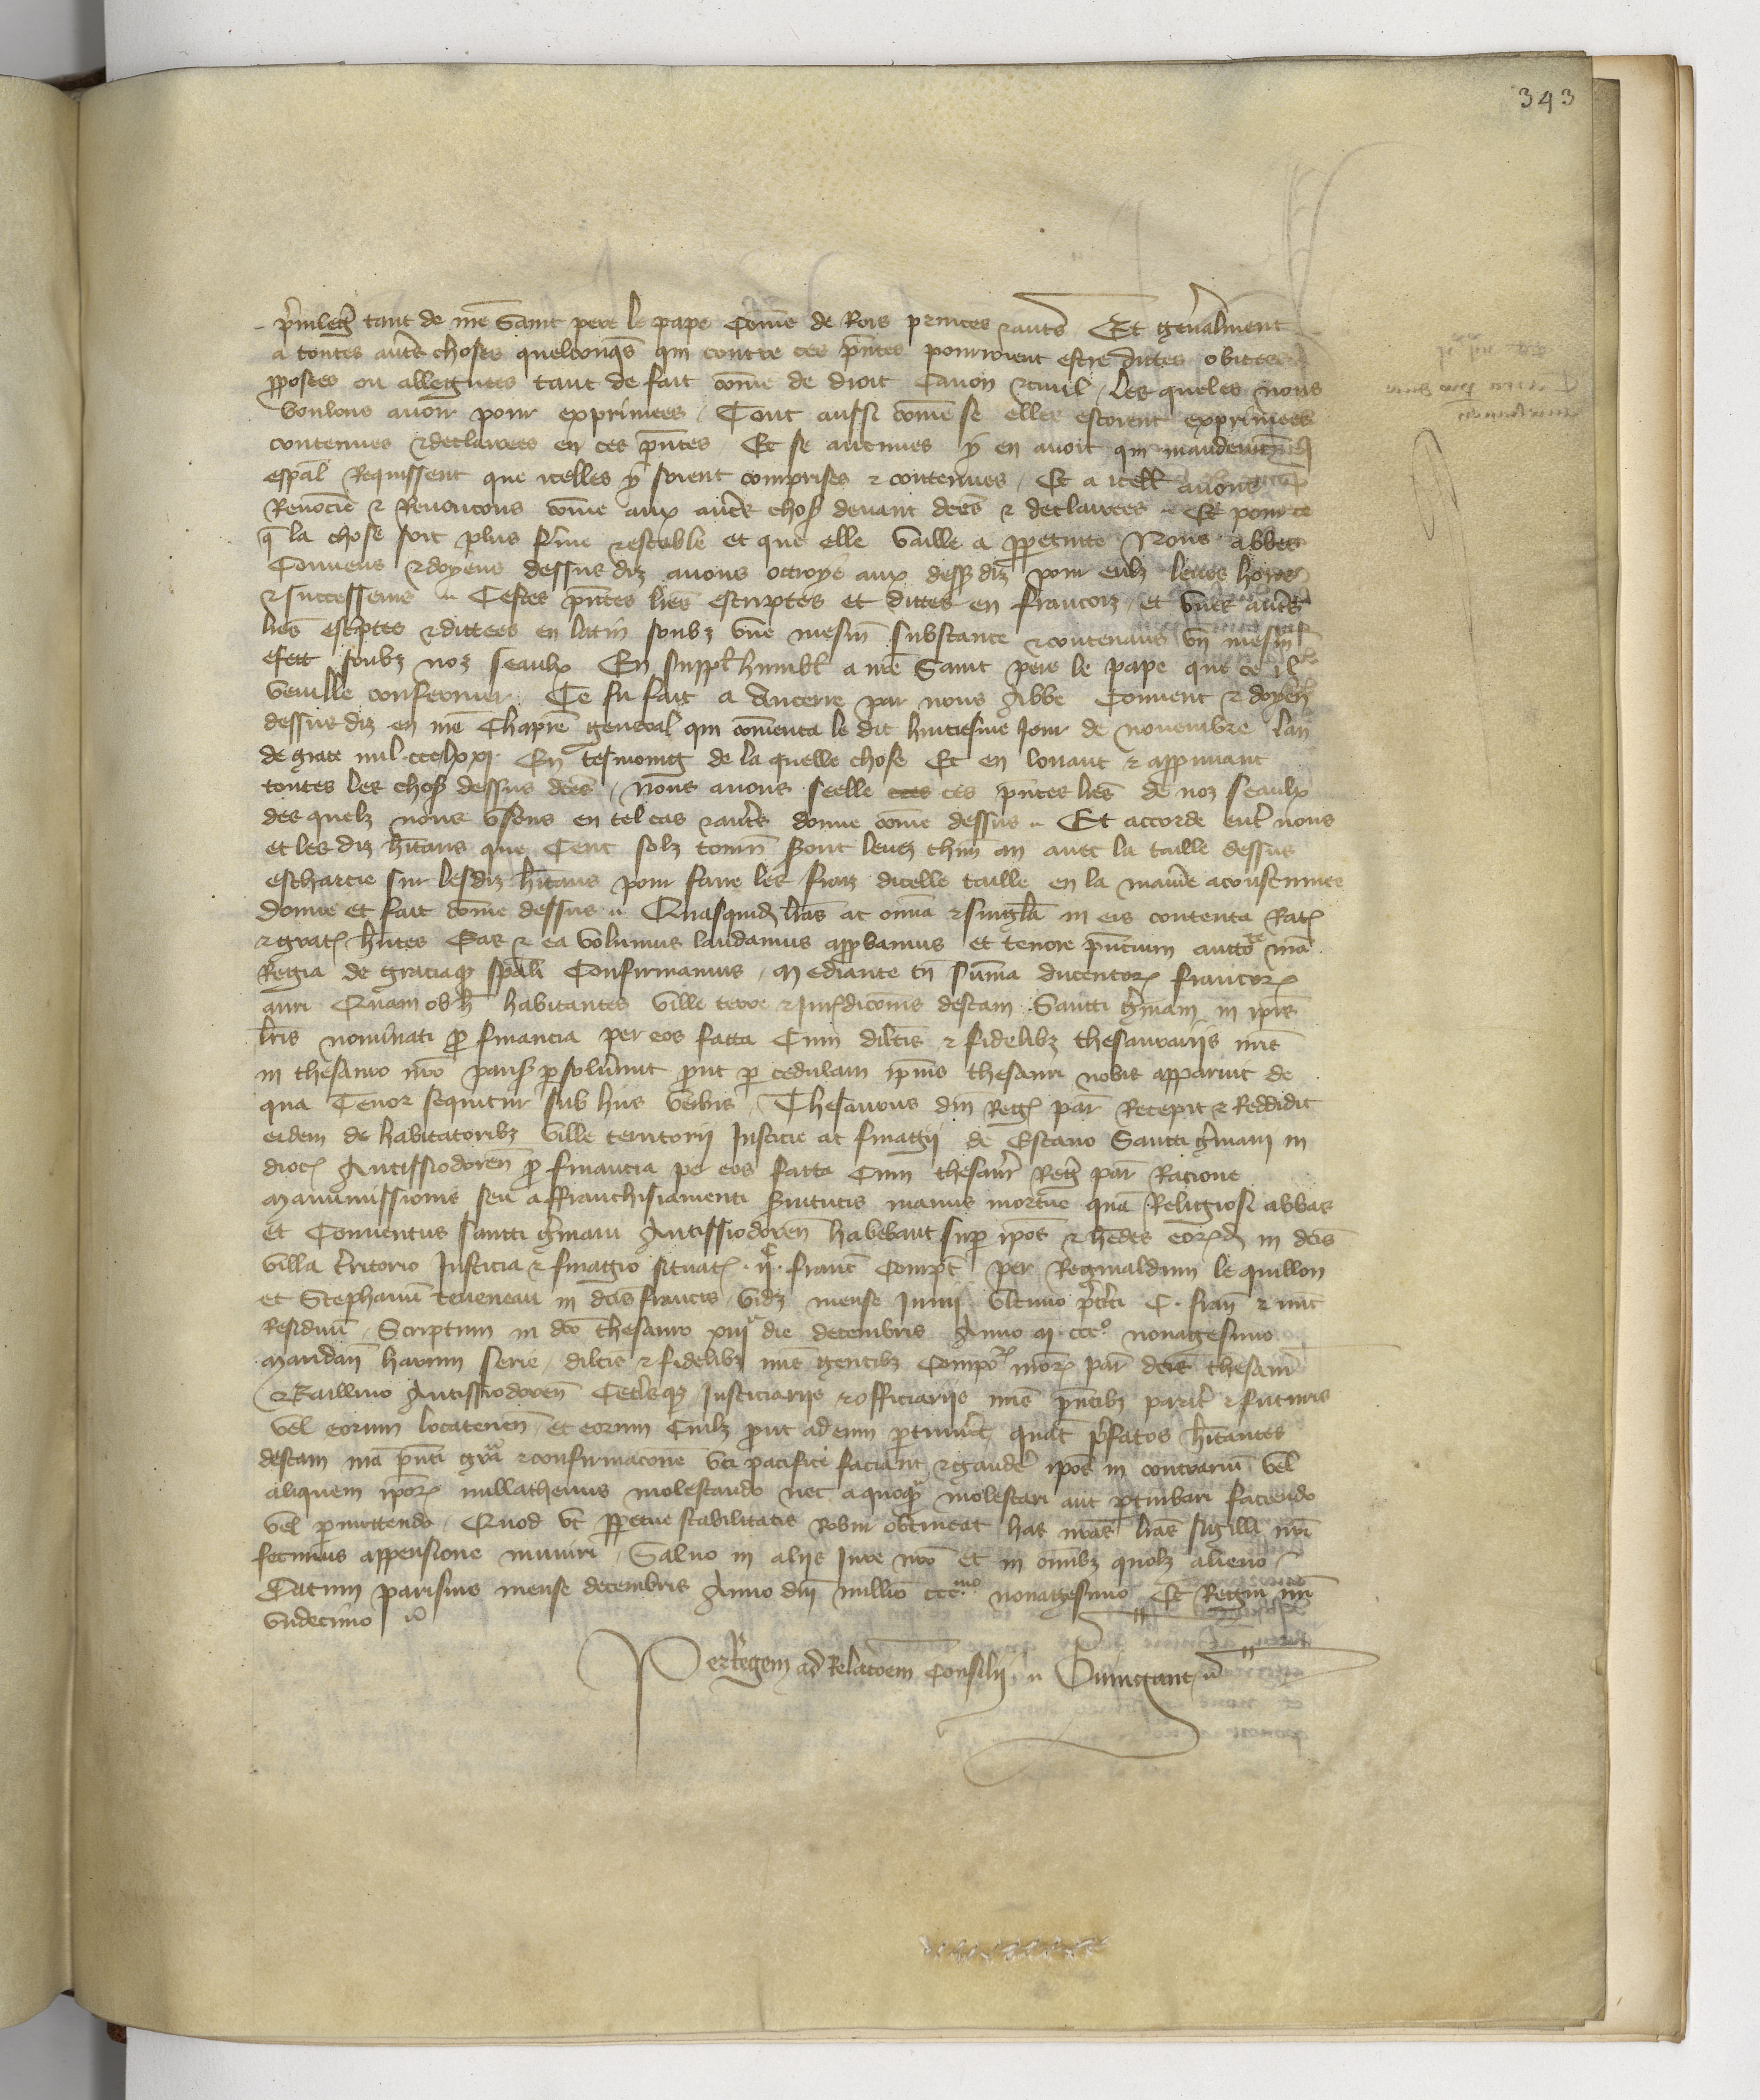 343
privileg tant de nre Saint pere le pape Come de Rois princes & autes Et generalment
a toutes autres choses quelconqs qui contre ces pntes pourroient estre dittes obicees
pposees ou alleguees tant de fait come de droit Canon & civil, les queles nous
voulons avoir pour exprimees, Tout aussi come se elles estoient exprimees
contenues & declairees en ces pntes, Et se aucunes y en avoit qui mandement
espal Requissent que icelles y soient comprises & contenues, Et a icell avons
Renoncie & Renoncons come aux autres chos devant dces & declairees Et pour ce
q la chose soit plus ferme & estable et que elle vaille a ppetuite Nous abbes
Convens & doyens dessus diz avons ottroye aux dess diz pour eulx leurs hoirs
& successeurs Cestes pntes lres escriptes et dittes en francois, et unes autres
lres escptes & dittees en latin soubz une mesm substance & contenans un mesm
efett soubz noz seaulx En suppl humbl a nre Saint pere le pape que ce il
vueille confermer Ce fu fait a Aucerre par nous Abbe Convent & doyens
dessus diz en nre Chapre general qui comenca le dit huitiesme Jour de novembre lan
de grace mil ccclxxi En tesmoing de la quelle chose Et en louant & approuvant
toutes les chos dessus dces, nous avons seelle ces pntes lres de noz seaulx
des quelz nous usons en tel cas & autes donne come dessus Et accorde entre nous
et les diz hitans que Cent solz tourn seront levez chun an avec la taille dessus
escharcie sur lesdiz hitans pour faire les frais dicelle taille en la maniere acoustumee
Donne et fait come dessus Quasquid lras ac omia & singla in eis contenta Rat
& grat hntes Eas & ea volumus laudamus approbamus et tenore pncium auctote nra
Regia de graciaq spali Confirmamus, Mediante tn suma ducentor francor
auri Quam ob h habitantes ville terre & Jurdiconis descam Sancti Gmani in ipis
lris nominati pro financia per eos facta Cum dilcis & fidelibz thesaurariis nris
in thesauro nro paris psolverunt prout p cedulam ipius thesauri nobis apparuit de
qua Tenor sequitur sub hiis verbis, Thesaurus dni Reg par Recepit & Reddidit
eidem de habitatoribz ville territorii Justicie ac finagii de Escano Sancti Gmani in
dioc Antissiodoren pro financia per eos facta Cum thesaur Reg par Racione
Manumissionis seu affranchisiamenti servitutis manus mortue qua Religiosi abbas
et Conventus sancti Gmani Antissiodoren habebant sup ipos & hedes eord in dcis
villa territorio Justicia & finagio situat iic franc Compt per Reginaldum le quillon
et Stephanu teveneau in dcis francis vidz mense Junii ultimo pterito C. fran & nunc
Residuu, Scriptum in dco thesauro xiiia die decembris Anno M ccco nonagesimo
Mandan harum serie, dilcis & fidelibz nris gentibz Compor nror par dcis thesaur
& Baillivo Antissiodoren Ceterisq Justiciariis & officiariis nris pntibz parit & futuris
vel eorum locatenen et eorum Cuilz prout ad eum ptinuerit quat pfatos hitantes
descam nra pnti gra & confirmacone uti pacifice faciant & gaudere ipos in contrariu vel
aliquem ipor nullathenus molestando nec a quoq molestari aut pturbari faciendo
vel permittendo, Quod ut ppetue stabilitatis Robur obtineat has nras lras sigilli nri
fecimus appensione muniri, Salvo in aliis Jure nro et in omibz quolz alieno
Datum parisius mense decembris Anno dni millio cccmo nonagesimo Et Regni nri
undecimo
Per Regem ad Relacionem Consilii